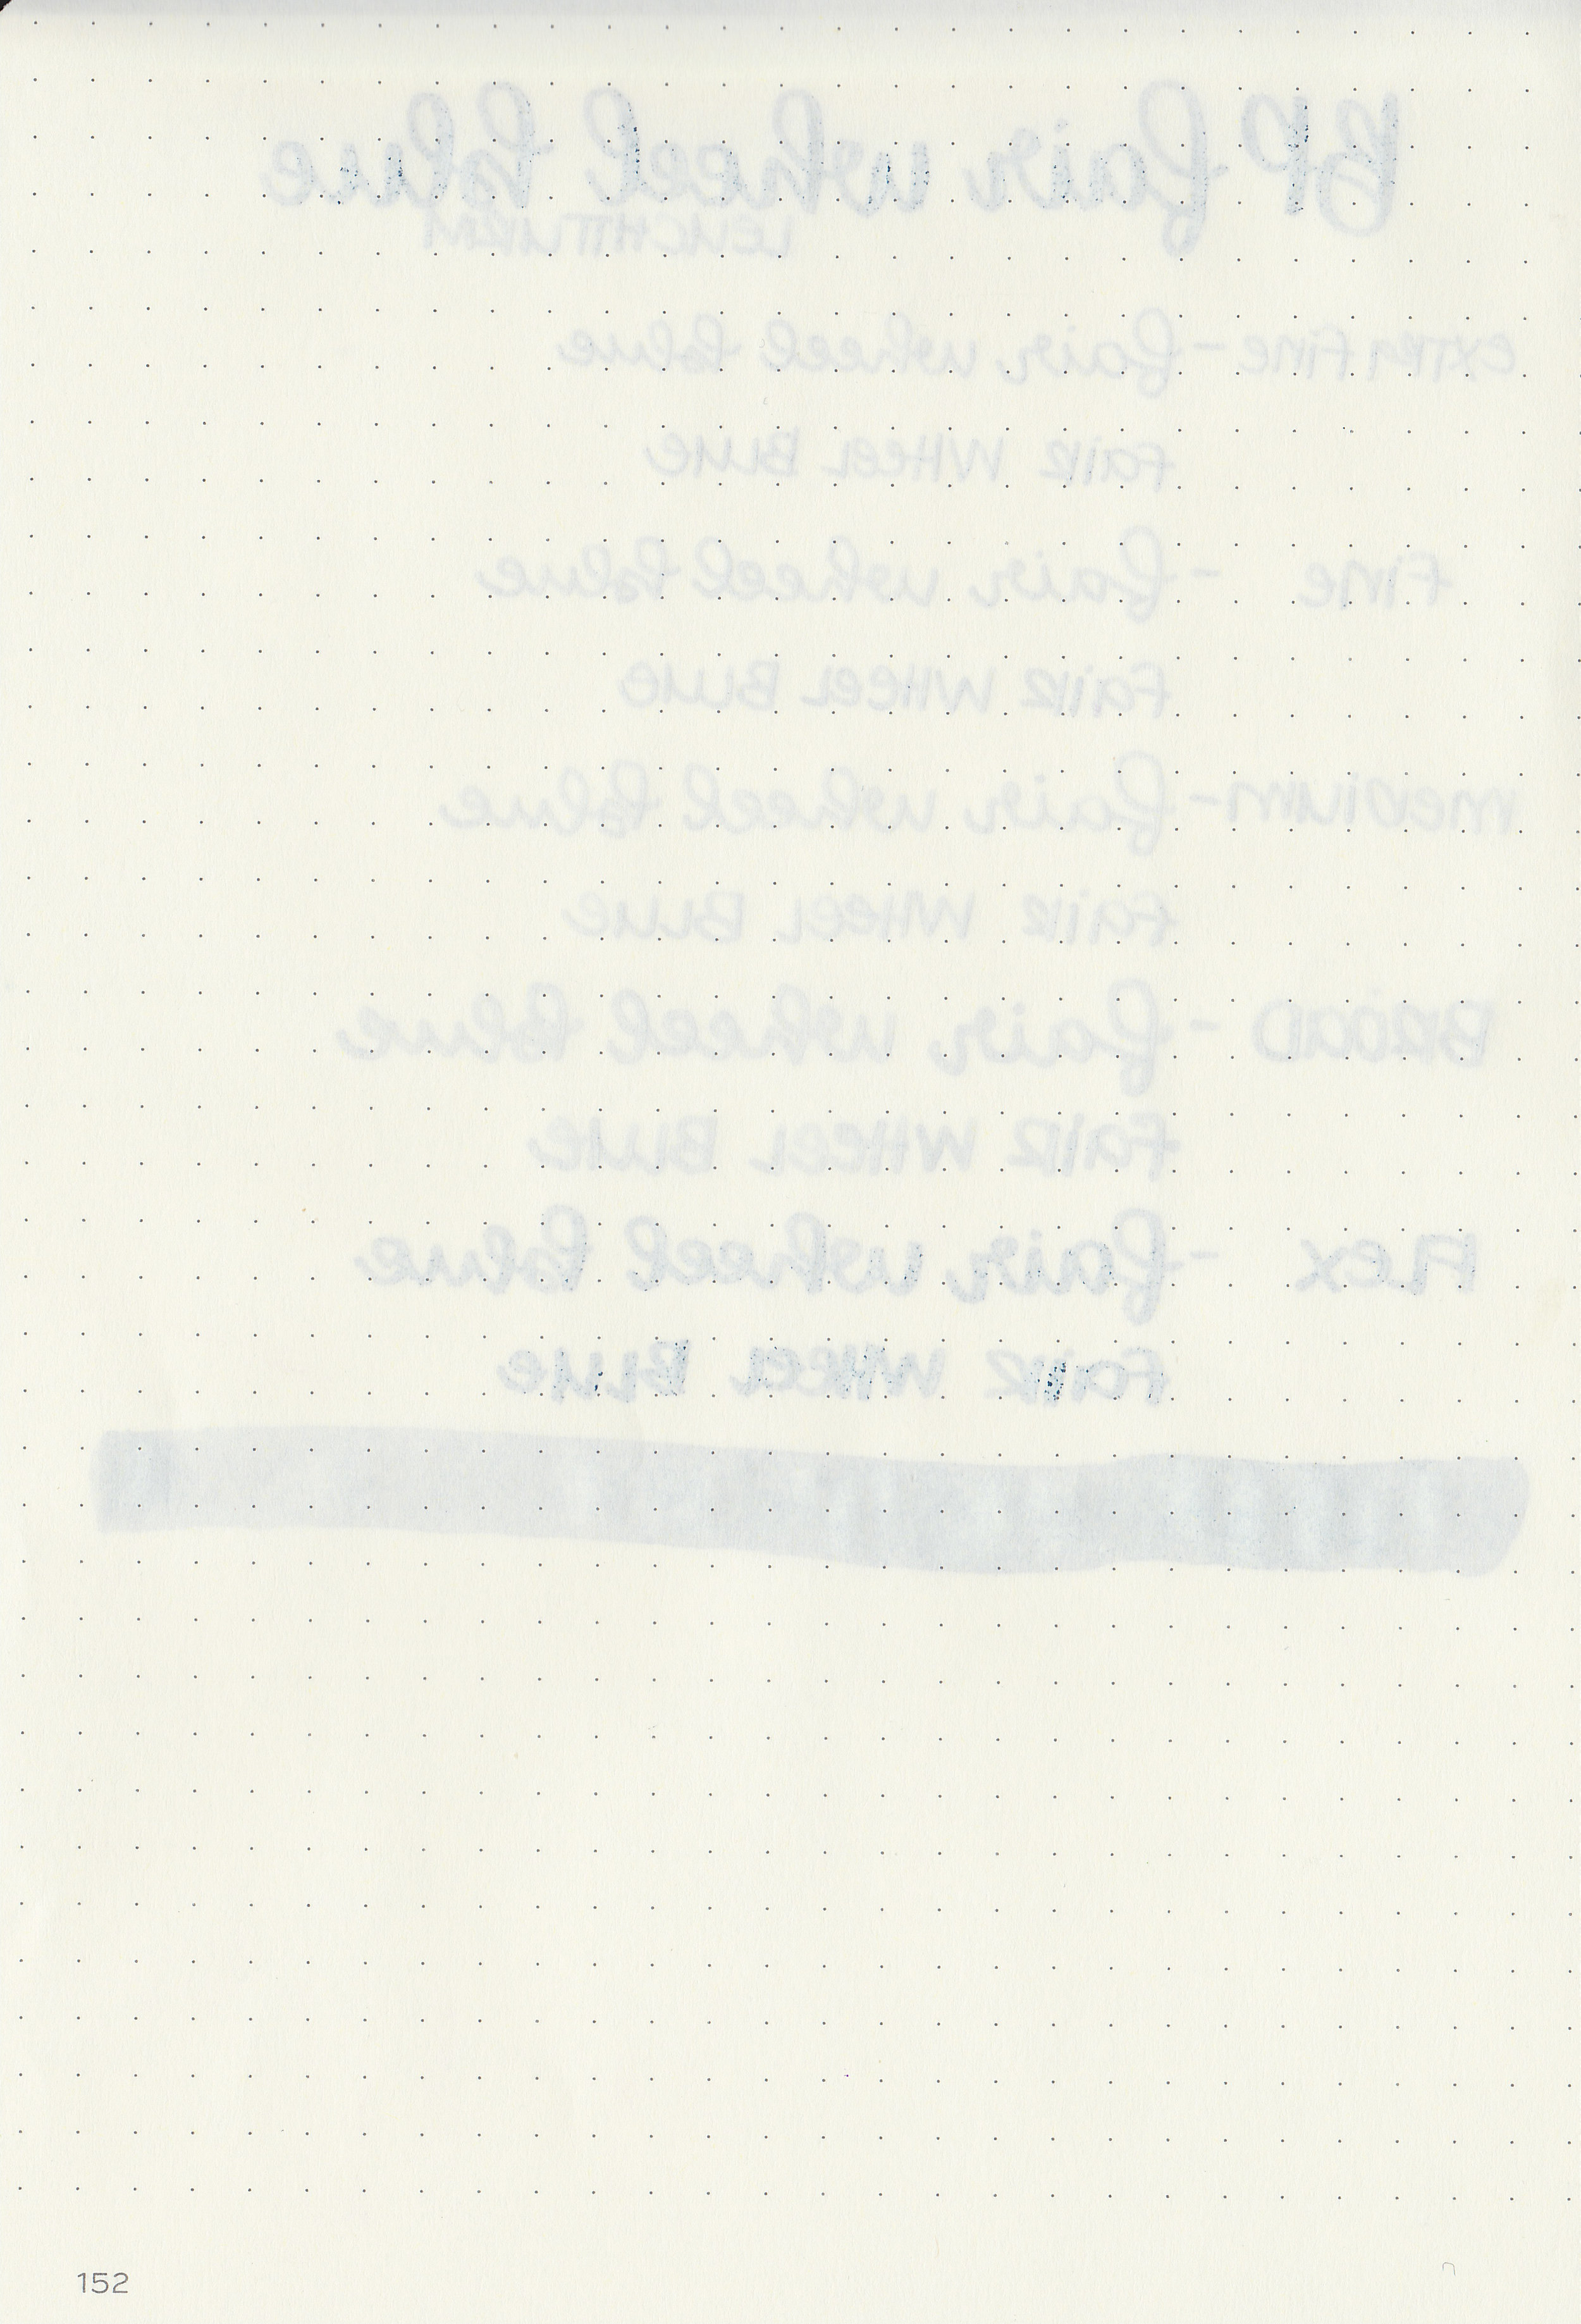 BP fair wheel blue
LEUCHTTURM
EXTRA FINE - fair wheel blue
FAIR WHEEL BLUE
FINE - fair wheel blue
FAIR WHEEL BLUE
MEDIUM - fair wheel blue
FAIR WHEEL BLUE
BROAD - fair wheel blue
FAIR WHEEL BLUE
FLEX - fair wheel blue
FAIR WHEEL BLUE
152